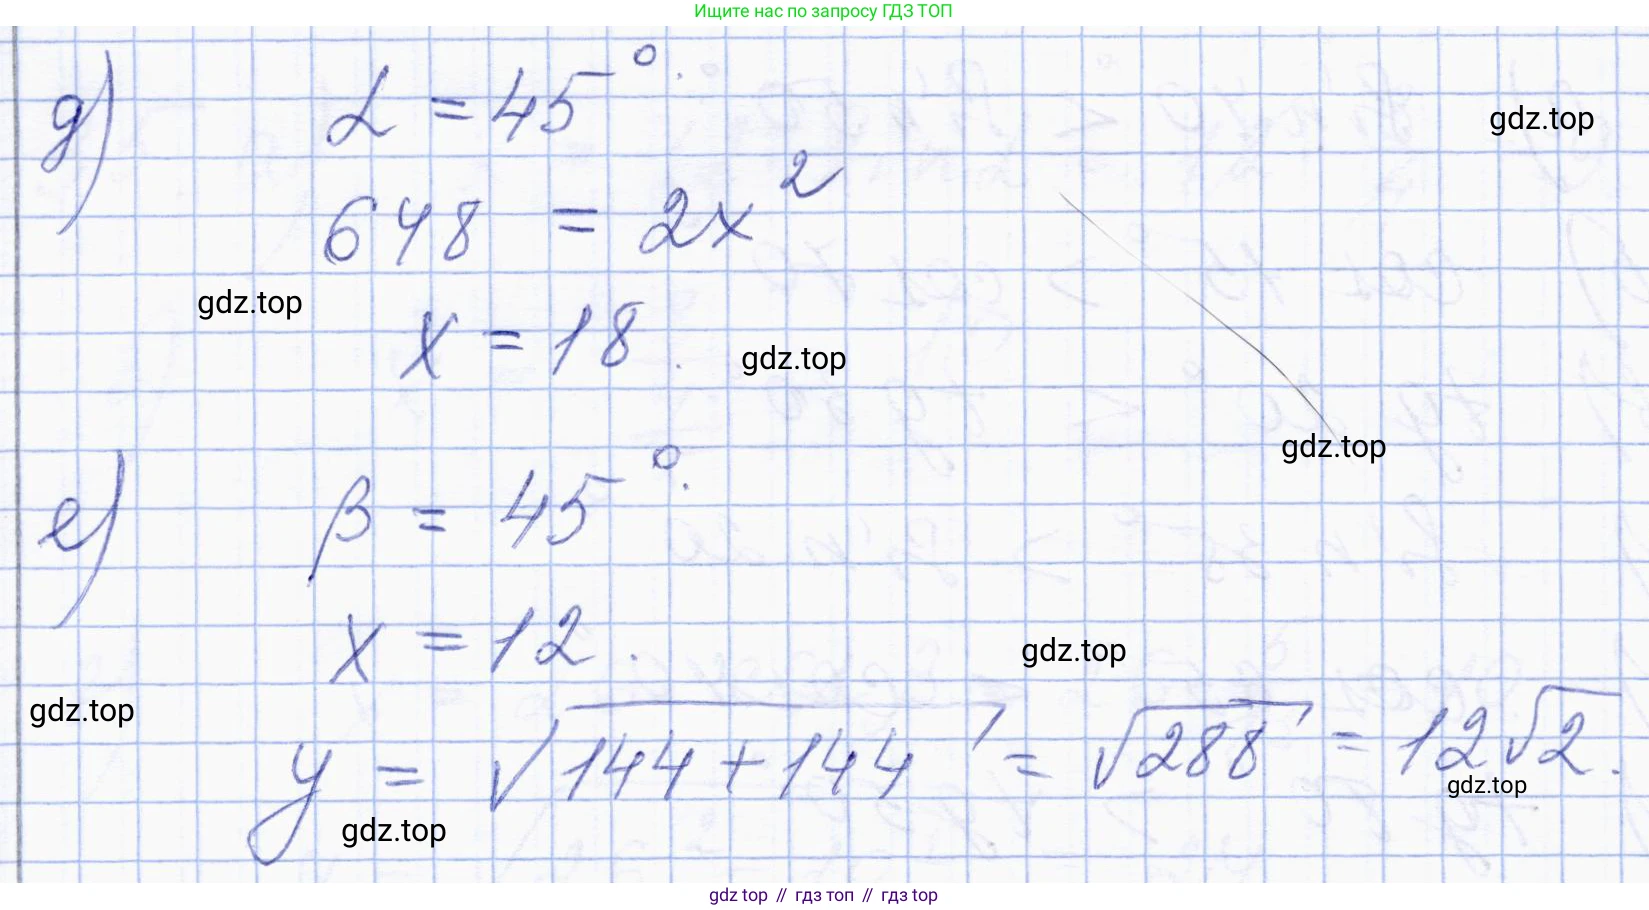 Ищите нас по запросу ГДЗ ТОП
д) α = 45°.
gdz.top
648 = 2x²
gdz.top
x = 18.
gdz.top
gdz.top
е) β = 45°.
x = 12.
gdz.top
gdz.top
y = √(144 + 144) = √288 = 12√2.
gdz.top
gdz.top
gdz top // гдз топ // gdz top